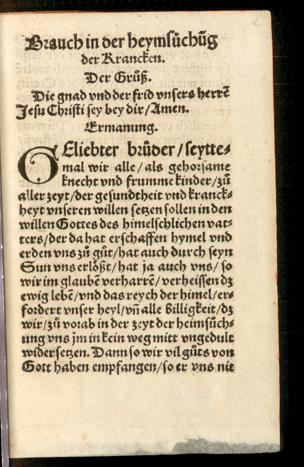 Brauch in der heymsůchūg
der Krancken.
Der Grůß.
Die gnad vnd der frid vnsers herrē
Jesu Christi sey bey dir/Amen.
Ermanung.
GEliebter brůder/seytte-
mal wir alle/als gehorsame
knecht vnd frumme kinder/zů
aller zeyt/der gesundtheit vnd kranck-
heyt vnseren willen setzen sollen in den
willen Gottes des himelschlichen vat-
ters/der da hat erschaffen hymel vnd
erden vns zů gůt/hat auch durch seyn
Sun vns erlößt/hat ja auch vns/so
wir im glaubē verharrē/verheissen dz
ewig lebē/vnd das reych der himel/er-
fordert vnser heyl/vn̄ alle billigkeit/dz
wir/zů vorab in der zeyt der heimsůch-
ung vns jm in kein weg mitt vngedult
widersetzen. Dann so wir vil gůts von
Gott haben empfangen/so er vns nit